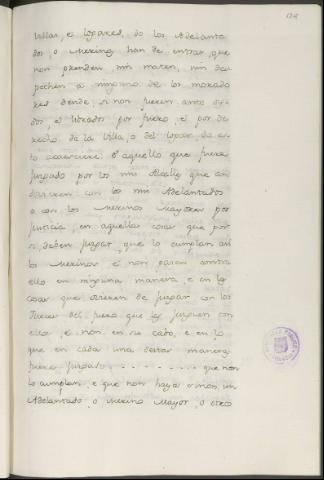 Villas, e logares, do los Adelanta
dos, o Merinos han de entrar, que
non prenden, nin maten, nin des
pechen a ninguno de los morado
res dende, si non fueren ante oi
dos, e librados por fuero, e por de
recho de la Villa, o del logar do es
to acaesciere. E aquello que fuere
juzgado por los mis Alcalles que an
dovieren con los mis Adelantados
o con los Merinos Mayores por
justicia en aquellas cosas que por
si deben juzgar, que lo cumplan asi
los Merinos, e non pasen contra
ello en ninguna manera, e en las
cosas que ovieren de juzgar con los
Jueces del fuero que las juzguen con
ellos, e non en su cabo, e en lo
que en cada una destas maneras
fuere juzgado - - - - - - - - que non
lo cumplan, e que non haya o mas un
Adelantado, o Merino Mayor, o otro